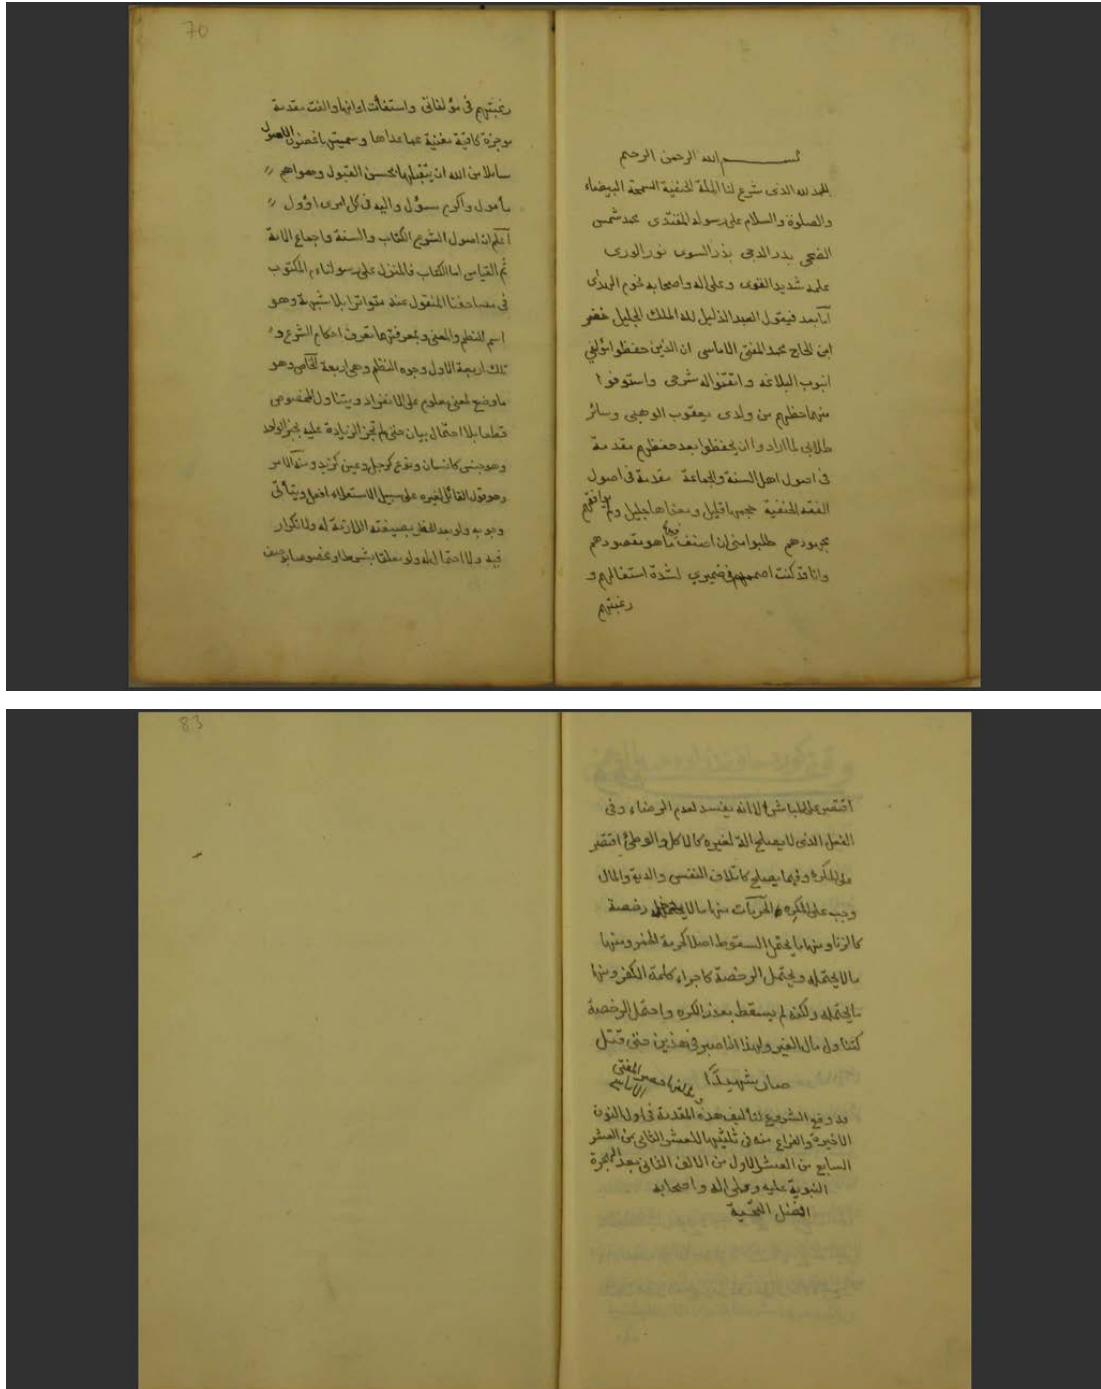 بسم الله الرحمن الرحيم
الحمد لله الذى شرع لنا الملة الحنفية السمحة البيضاء
والصلوة والسلام على رسوله المقتدى محمد شمس
الضحى بدر الدجى نور الورى
علمه شديد القوى وعلى اله واصحابه نجوم الهدى
اما بعد فيقول العبد الذليل لله الملك الجليل خضر
ابن الحاج محمد المفتى الاماسى ان الذين حفظوا مؤلفي
انبوب البلاغه واتقنوا له شرحى واستوفوا
منهما حظهم من ولدى يعقوب الوهبى وسائر
طلابى لما ارادوا ان يحفظوا بعد حفظهم مقدمة
فى اصول اهل السنة والجماعة مقدمة فى اصول
الفقه الحنفية حجمها قليل ومعناها جليل ولم يوافقهم
مجهودهم طلبوا منى ان اصنف ما هو مقصودهم
وانا قد كنت فى ضميري لشدة اشتغالهم و
رغبتهم
70
رغبتهم فى مؤلفاتى والفت مقدمة
موجزة كافية مغنية عما عداها وسميتها غصون الاصول
سائلا من الله ان يتقبلها بحسن القبول وهو اهم
مأمول واكرم مسؤل واليه فى كل امرى اؤول
اعلم ان اصول الشرع الكتاب والسنة واجماع الامة
ثم القياس اما الكتاب فالمنزل على رسولنا م المكتوب
فى مصاحفنا المنقول عنه متواترا بلا شبهة وهو
اسم للنظم والمعنى وبمعرفتهما تعرف احكام الشرع و
تلك اربعة الاول وجوه النظم وهى اربعة الخاص وهو
ما وضع لمعنى معلوم على الانفراد ويتناول المخصوص
قطعا بلا احتمال بيان حتى لم تجز الزيادة عليه بخبر الواحد
وهو جنس كانسان ونوع كرجل وعين كزيد ومنه الامر
وهو قول القائل لغيره على سبيل الاستعلاء افعل ويتأتى
وجوبه ولو بعد الحظر بصيغته اللازمة له ولا تكرار
فيه ولا احتمال له ولو معلقا بشرط او مخصوصا بوصف
اقتصر على المباشر الا انه يفسد لعدم الرضاء وفى
الفعل الذى لا يصلح الة لغيره كالاكل والوطئ اقتصر
على المكره وفيما يصلح كاتلاف النفس والدية والمال
وجب على المكره والحرمات منها ما لا رخصة
كالزنا ومنها ما يحتمل السقوط اصلا كحرمة الخمر ومنها
ما لا يحتمله ويحتمل الرخصة كاجراء كلمة الكفر ومنها
ما يحتمله ولكنه لم يسقط بعذر الكره واحتمل الرخصة
كتناول مال الغير ولهذا اذا صبر فى هذين حتى قتل
صار شهيدًا
قد وقع الشروع لتأليف هذه المقدمة فى اول
الاخيرة والفراغ منه فى ثلثيها للعشر الثانى من العشر
السابع من العشر الاول من الالف الثانى بعد الهجرة
النبوية عليه وعلى اله واصحابه
افضل التحية
83